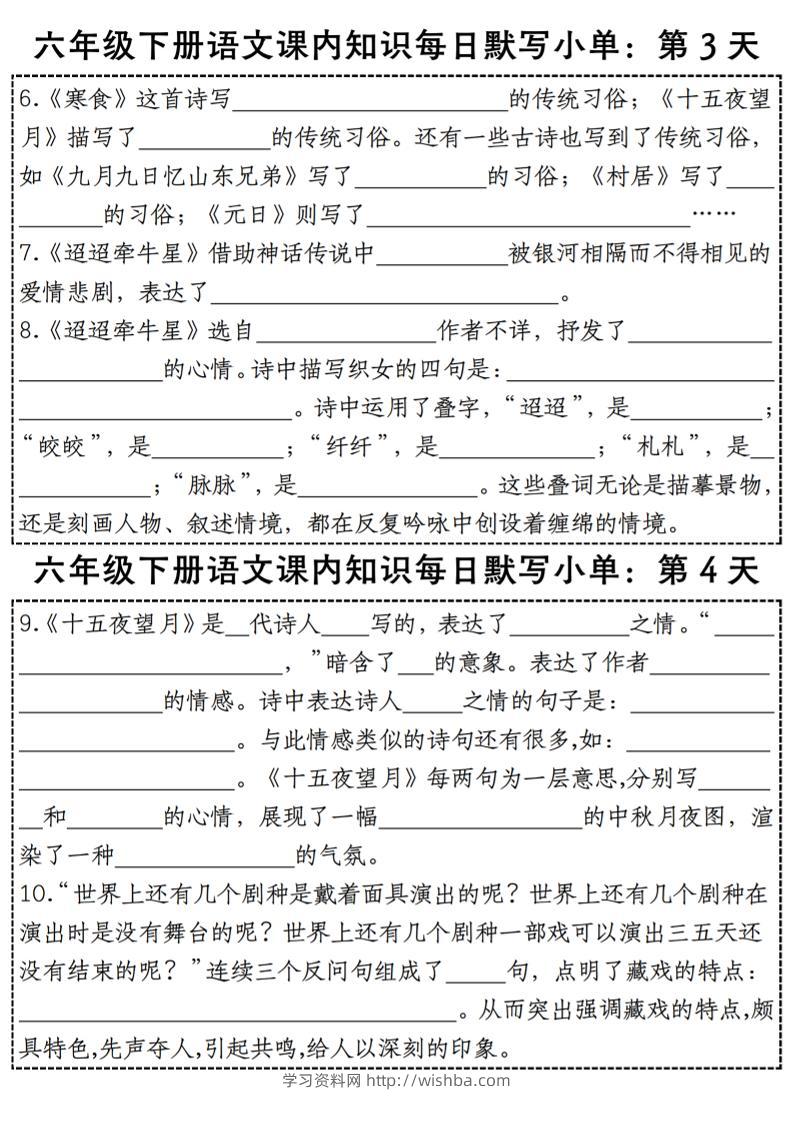 六年级下册语文课内知识每日默写小单：第 3 天
6.《寒食》这首诗写______________________的传统习俗；《十五夜望
月》描写了___________的传统习俗。还有一些古诗也写到了传统习俗，
如《九月九日忆山东兄弟》写了___________的习俗；《村居》写了____
_______的习俗；《元日》则写了___________________________……
7.《迢迢牵牛星》借助神话传说中___________被银河相隔而不得相见的
爱情悲剧，表达了_____________________________。
8.《迢迢牵牛星》选自_______________作者不详，抒发了____________
____________的心情。诗中描写织女的四句是：______________________
_______________________。诗中运用了叠字，“迢迢”，是___________；
“皎皎”，是___________；“纤纤”，是_____________；“札札”，是__
___________；“脉脉”，是_______________。这些叠词无论是描摹景物，
还是刻画人物、叙述情境，都在反复吟咏中创设着缠绵的情境。
六年级下册语文课内知识每日默写小单：第 4 天
9.《十五夜望月》是__代诗人____写的，表达了__________之情。“_____
______________________，”暗含了___的意象。表达了作者__________
____________的情感。诗中表达诗人_____之情的句子是：____________
__________________。与此情感类似的诗句还有很多,如：____________
__________________。《十五夜望月》每两句为一层意思,分别写______
__和________的心情，展现了一幅_________________的中秋月夜图，渲
染了一种_______________的气氛。
10.“世界上还有几个剧种是戴着面具演出的呢？世界上还有几个剧种在
演出时是没有舞台的呢？世界上还有几个剧种一部戏可以演出三五天还
没有结束的呢？”连续三个反问句组成了_____句，点明了藏戏的特点：
____________________________________。从而突出强调藏戏的特点,颇
具特色,先声夺人,引起共鸣,给人以深刻的印象。
学习资料网 http://wishba.com